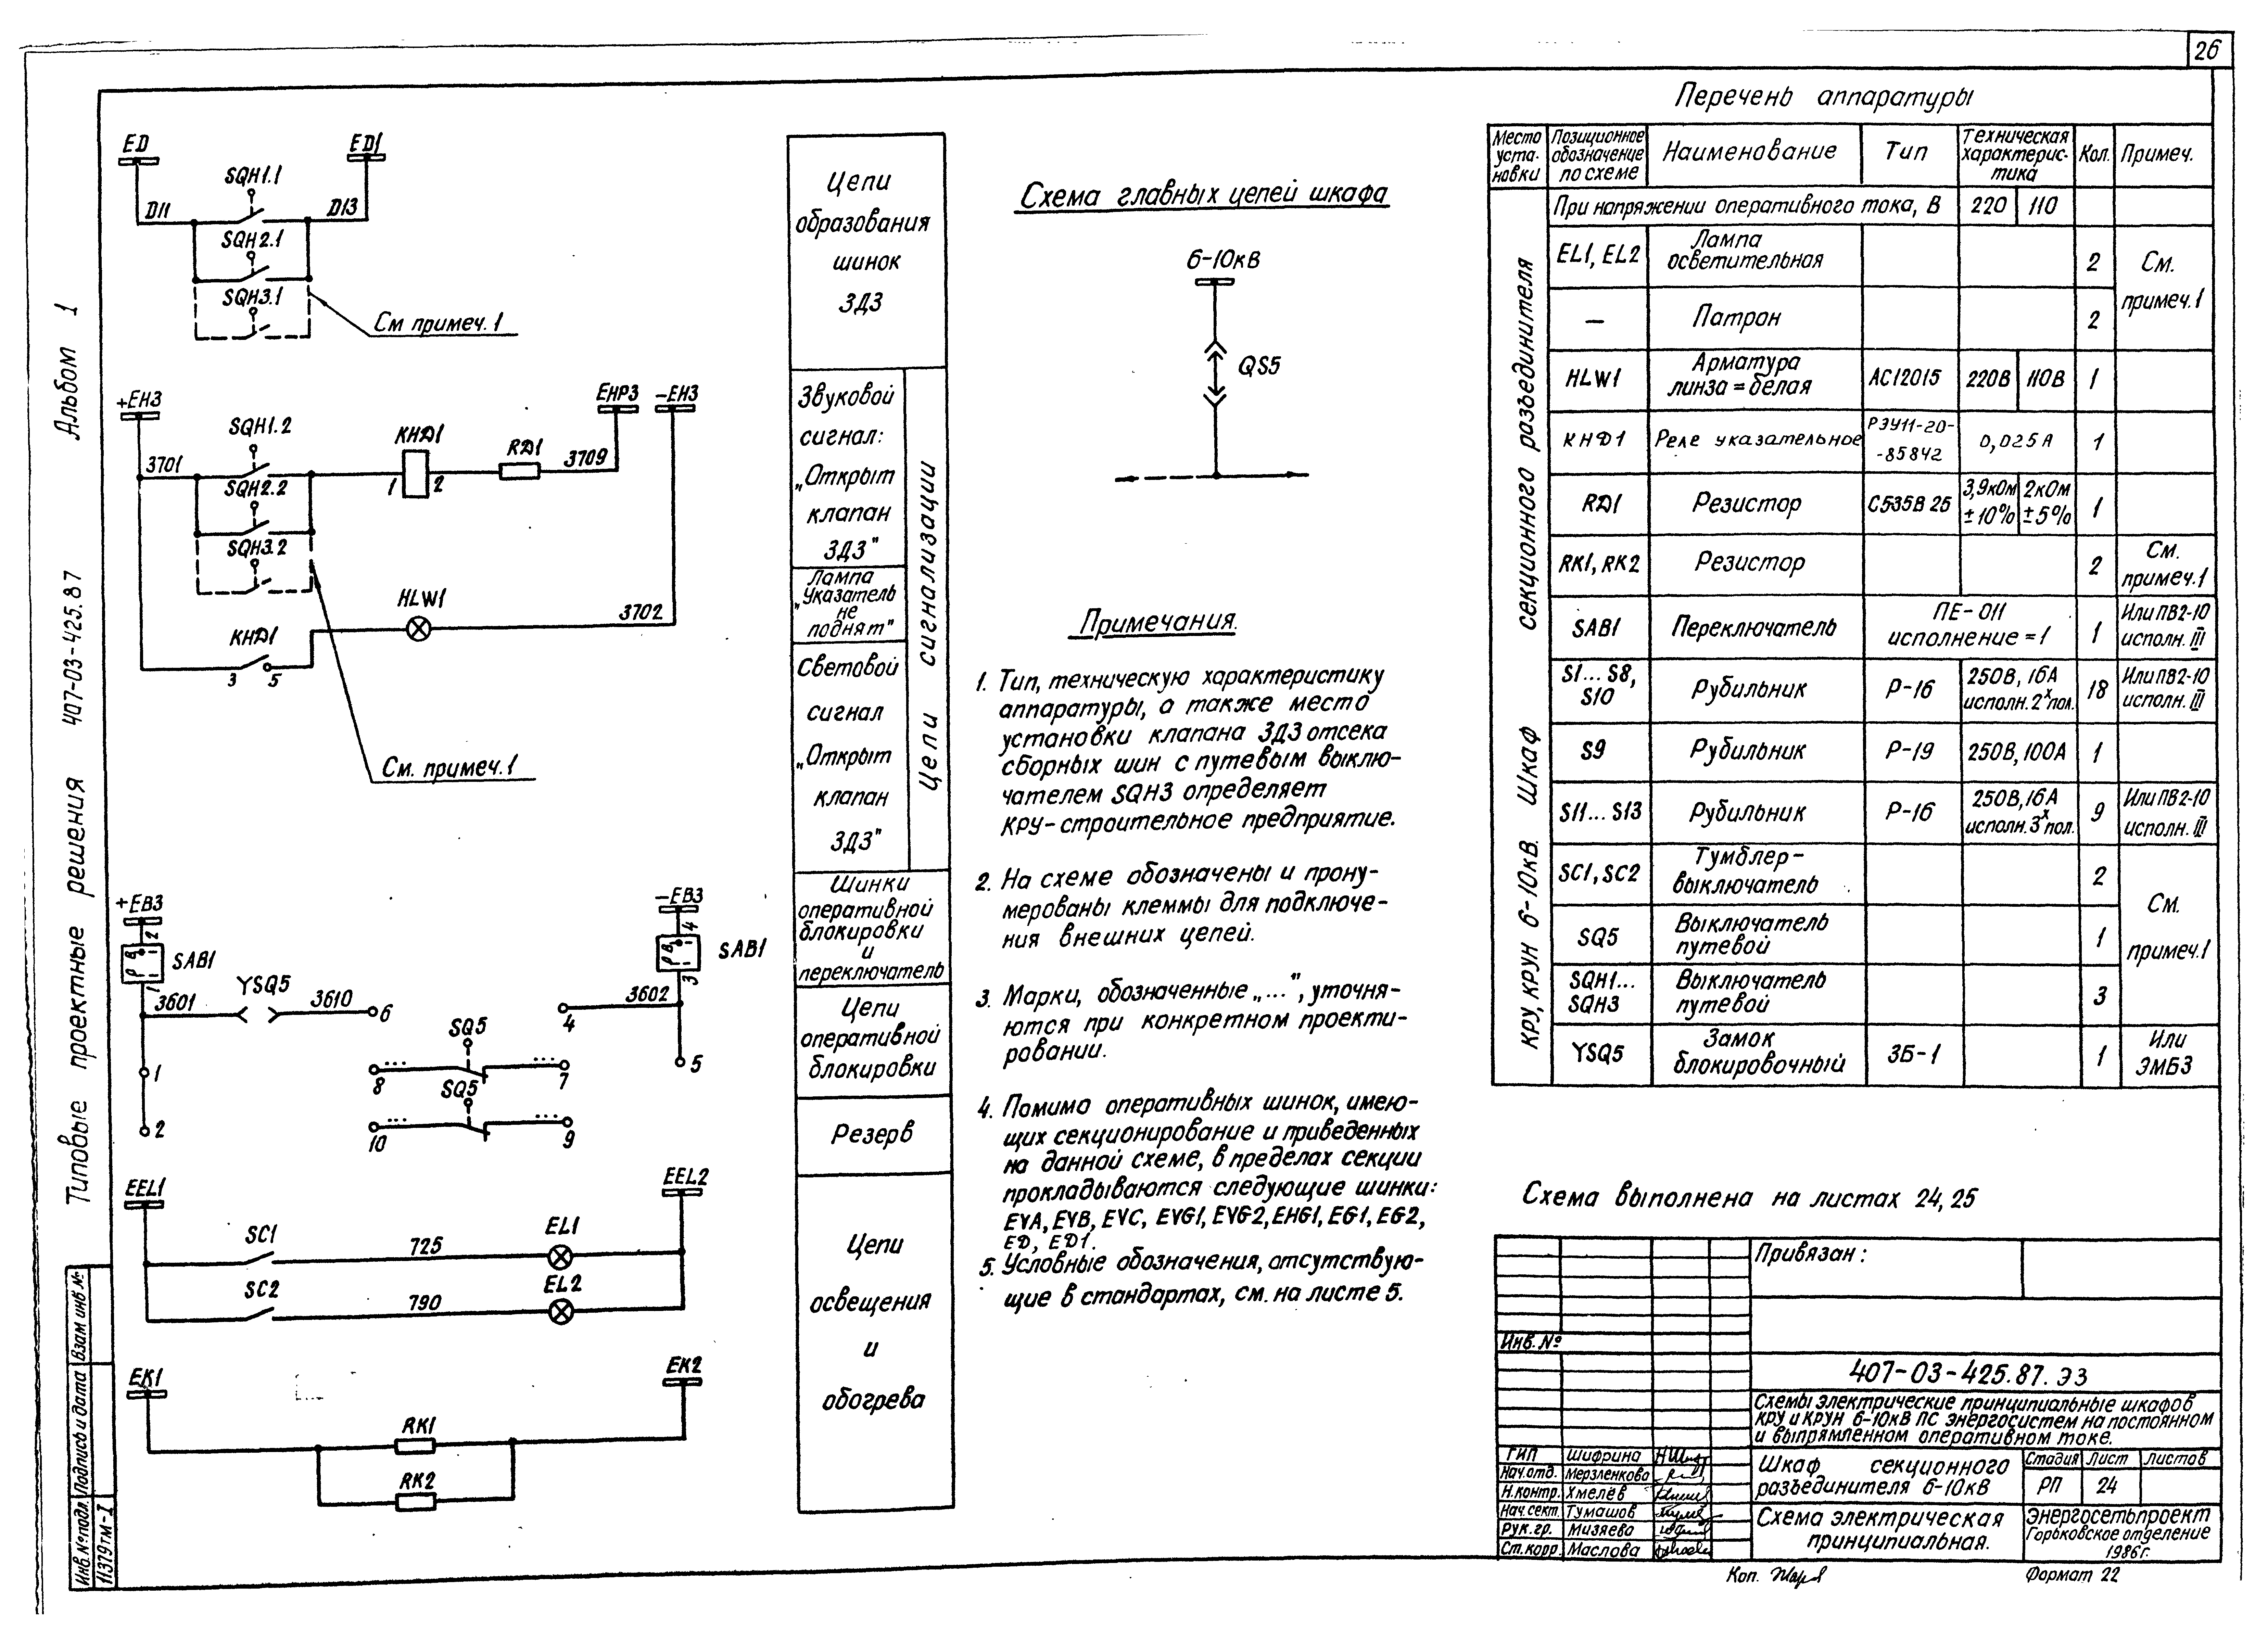 26
Альбом 1
407-03-425.87
Типовые проектные решения
Взам инв №
Подпись и дата
Инв.№подл.
11379тм-I
ED
ED1
SQH1.1
D11
D13
SQH2.1
SQH3.1
См примеч.1
+EH3
EHP3
-EH3
SQH1.2
KHД1
RД1
3701
1
2
3709
SQH2.2
SQH3.2
HLW1
3702
KHД1
3
5
См. примеч.1
+EB3
-EB3
2
4
SAB1
SAB1
1
3
3601
YSQ5
3610
6
3602
4
SQ5
...
...
1
8
7
5
SQ5
...
...
2
10
9
EEL1
EEL2
SC1
725
EL1
SC2
790
EL2
EK1
EK2
RK1
RK2
Цепи
образования
шинок
ЗДЗ
Звуковой
сигнал:
„Открыт
клапан
ЗДЗ"
Лампа
„Указатель
не
поднят"
Световой
сигнал
„Открыт
клапан
ЗДЗ"
Цепи сигнализации
Шинки
оперативной
блокировки
и
переключатель
Цепи
оперативной
блокировки
Резерв
Цепи
освещения
и
обогрева
Схема главных цепей шкафа
6-10кВ
QS5
Примечания.
1. Тип, техническую характеристику
аппаратуры, а также место
установки клапана ЗДЗ отсека
сборных шин с путевым выклю-
чателем SQH3 определяет
КРУ-строительное предприятие.
2. На схеме обозначены и прону-
мерованы клеммы для подключе-
ния внешних цепей.
3. Марки, обозначенные „...", уточня-
ются при конкретном проекти-
ровании.
4. Помимо оперативных шинок, имею-
щих секционирование и приведенных
на данной схеме, в пределах секции
прокладываются следующие шинки:
EVA, EVB, EVC, EVG1, EVG2, EHG1, EG1, EG2,
ED, ED1.
5. Условные обозначения, отсутствую-
щие в стандартах, см. на листе 5.
Перечень аппаратуры
Место уста-новки Позиционное обозначение по схеме Наименование Тип Техническая характерис-тика Кол. Примеч.
КРУ, КРУН 6-10кВ. Шкаф секционного разъединителя
При напряжении оперативного тока, В 220 110
EL1, EL2 Лампа осветительная 2 См. примеч.1
— Патрон 2
HLW1 Арматура линза=белая АС12015 220В 110В 1
KHД1 Реле указательное РЭУ11-20-85842 0,025А 1
RД1 Резистор С535В25 3,9кОм ±10% 2кОм ±5% 1
RK1, RK2 Резистор 2 См. примеч.1
SAB1 Переключатель ПЕ-011 исполнение=1 1 Или ПВ2-10 исполн. III
S1...S8, S10 Рубильник Р-16 250В, 16А исполн. 2х пол. 18 Или ПВ2-10 исполн. III
S9 Рубильник Р-19 250В, 100А 1
S11...S13 Рубильник Р-16 250В, 16А исполн. 3х пол. 9 Или ПВ2-10 исполн. III
SC1, SC2 Тумблер-выключатель 2 См. примеч.1
SQ5 Выключатель путевой 1
SQH1... SQH3 Выключатель путевой 3
YSQ5 Замок блокировочный ЗБ-1 1 Или ЭМБЗ
Схема выполнена на листах 24, 25
Привязан:
Инв.№
407-03-425.87.ЭЗ
Схемы электрические принципиальные шкафов
КРУ и КРУН 6-10кВ ПС энергосистем на постоянном
и выпрямленном оперативном токе.
ГИП Шифрина
Нач.отд. Мерзленкова
Н.контр. Хмелёв
Нач.сект. Тумашов
Рук.гр. Мизяева
Ст.корр. Маслова
Шкаф секционного
разъединителя 6-10кВ
Стадия Лист Листов
РП 24
Схема электрическая
принципиальная.
Энергосетьпроект
Горьковское отделение
1986г.
Коп.
Формат 22